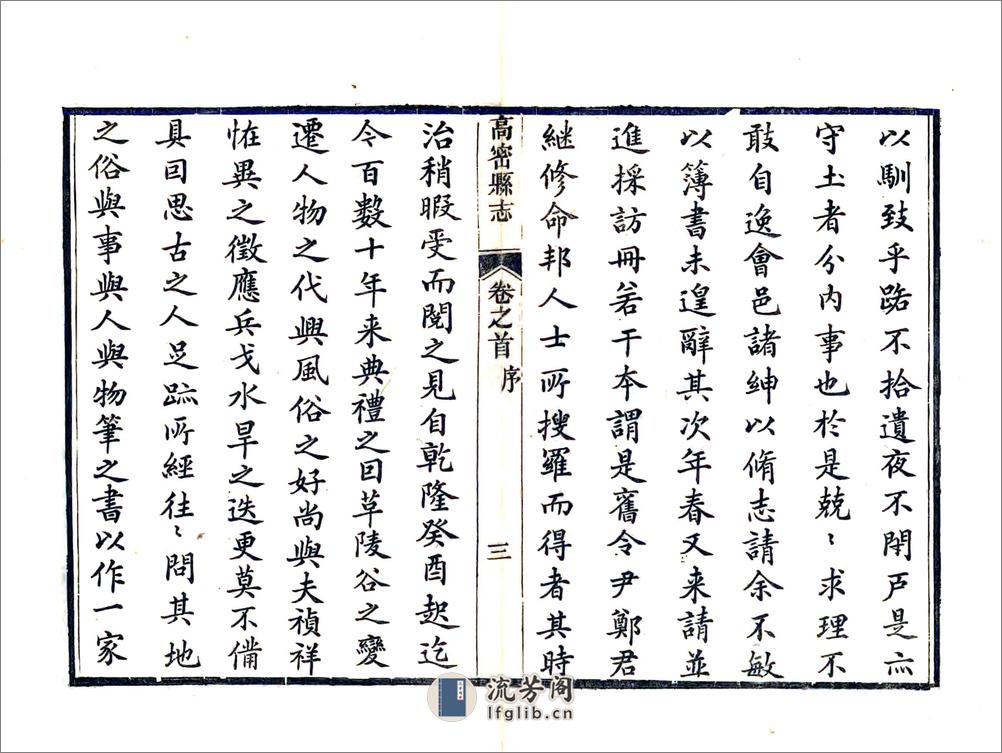 以馴致乎路不拾遺夜不閉戸是亦
守土者分內事也於是兢〻求理不
敢自逸會邑諸紳以脩志請余不敏
以簿書未遑辭其次年春又来請並
進採訪冊若干本謂是舊令尹鄭君
継修命邦人士所搜羅而得者其時
高密縣志
卷之首
序
三
治稍暇受而閱之見自乾隆癸酉起迄
今百數十年来典禮之因革陵谷之變
遷人物之代興風俗之好尚與夫禎祥
恠異之徵應兵戈水旱之迭更莫不備
具回思古之人足跡所經往〻問其地
之俗與事與人與物筆之書以作一家
流芳阁
lfglib.cn